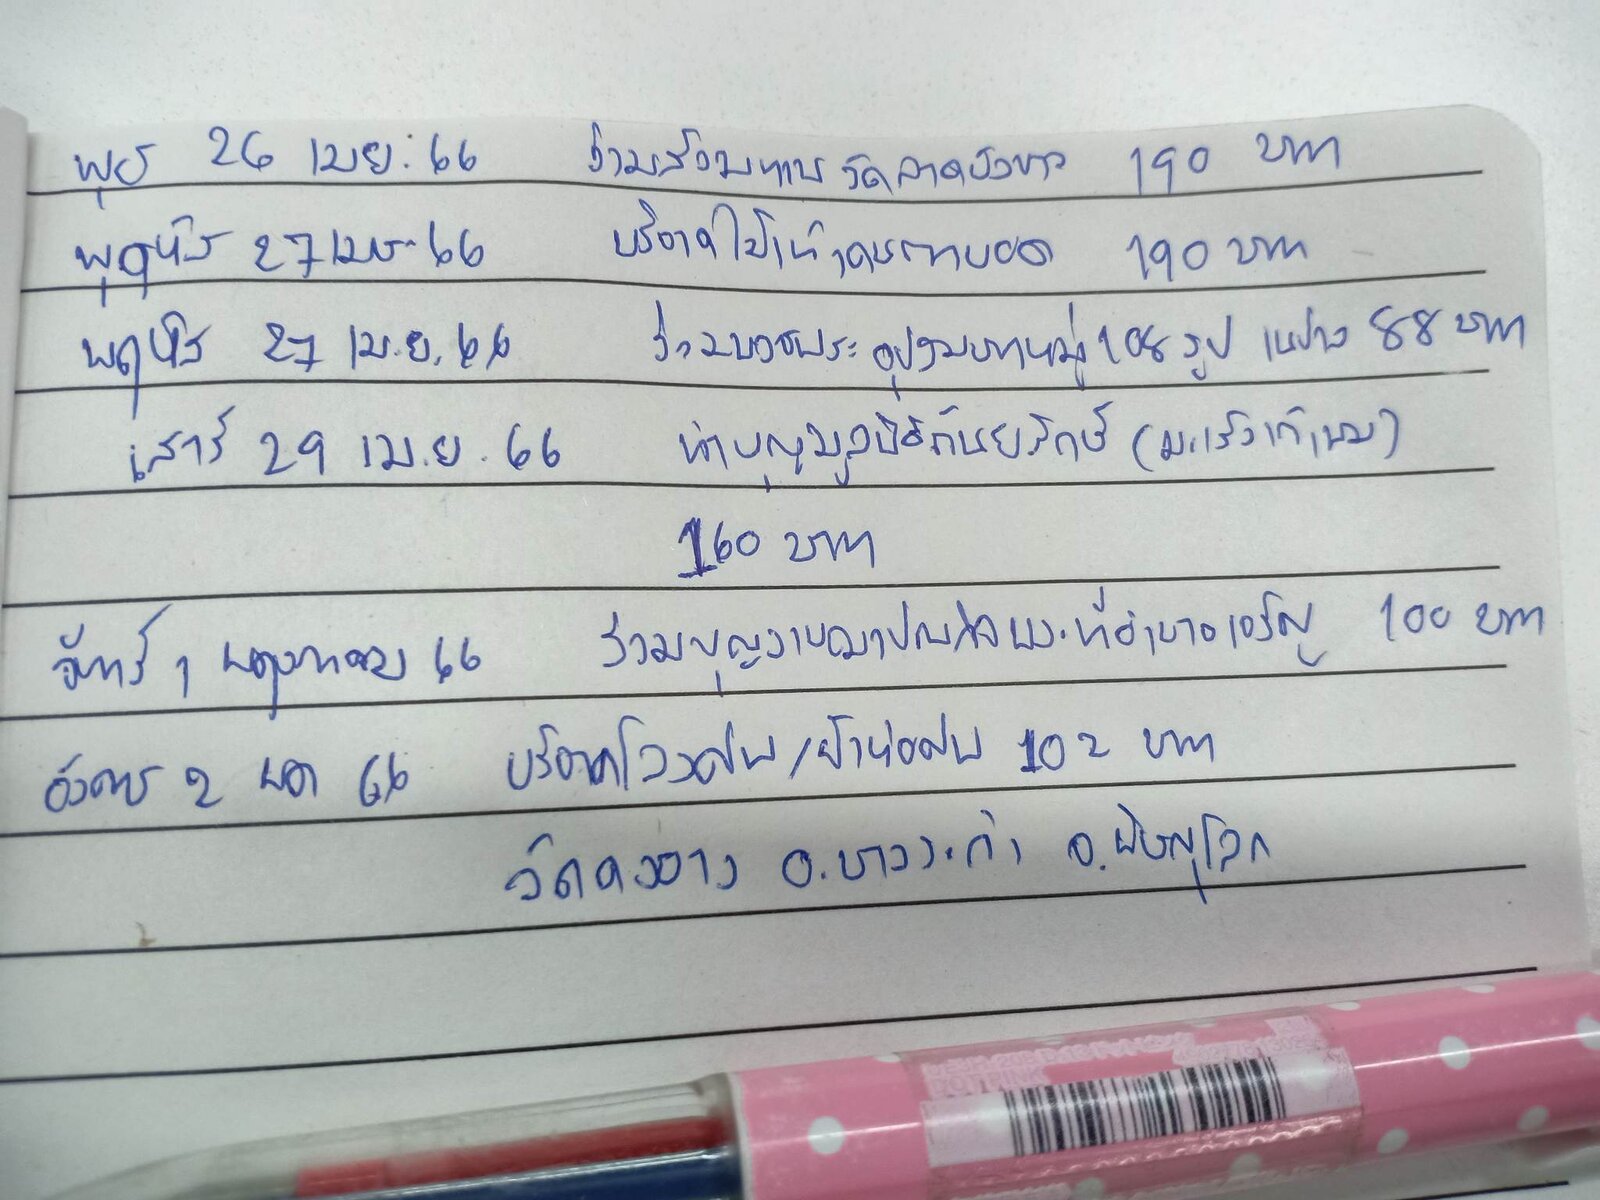 พุธ 26 เมย. 66 ร่วมสังฆทาน วัดลาดบัวขาว 190 บาท
พฤหัส 27 เมย 66 บริจาคไม้เท้าคนตาบอด 190 บาท
พฤหัส 27 เม.ย. 66 ร่วมบวชพระอุปสมบทหมู่ 108 รูป 88 บาท
เสาร์ 29 เม.ย. 66 ทำบุญมูลนิธิกันยรักษ์ (มะเร็งเต้านม)
160 บาท
จันทร์ 1 พฤษภาคม 66 ร่วมบุญงานฌาปนกิจพระที่อำนาจเจริญ 100 บาท
อังคาร 2 พค 66 บริจาคโลงศพ/ผ้าห่อศพ 102 บาท
วัด อ.บางระกำ จ.พิษณุโลก